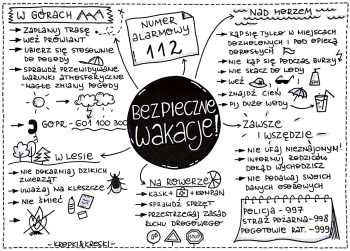 W GÓRACH
ZAPLANUJ TRASĘ
WEŹ PROWIANT
UBIERZ SIĘ STOSOWNIE
DO POGODY
SPRAWDŹ PRZEWIDYWANE
WARUNKI ATMOSFERYCZNE
-NAGŁE ZMIANY POGODY
GOPR - 601 100 300
NUMER
ALARMOWY
112
NAD MORZEM
KĄP SIĘ TYLKO W MIEJSCACH
DOZWOLONYCH I POD OPIEKĄ
DOROSŁYCH
NIE KĄP SIĘ PODCZAS BURZY!
NIE SKACZ DO WODY
WEŹ
ZNAJDŹ CIEŃ
PIJ DUŻO WODY
BEZPIECZNE
WAKACJE!
W LESIE
NIE DOKARMIAJ DZIKICH
ZWIERZĄT
UWAŻAJ NA KLESZCZE
NIE ŚMIEĆ
KROPKI&KRESKI
NA ROWERZE
KASK + + KOMPAN
SPRAWDŹ SPRZĘT
PRZESTRZEGAJ ZASAD
RUCHU DROGOWEGO
ZAWSZE
I WSZĘDZIE
NIE UFAJ NIEZNAJOMYM!
INFORMUJ RODZICÓW
DOKĄD WYCHODZISZ
NIE PODAWAJ SWOICH
DANYCH OSOBOWYCH
POLICJA - 997
STRAŻ POŻARNA - 998
POGOTOWIE RAT. - 999